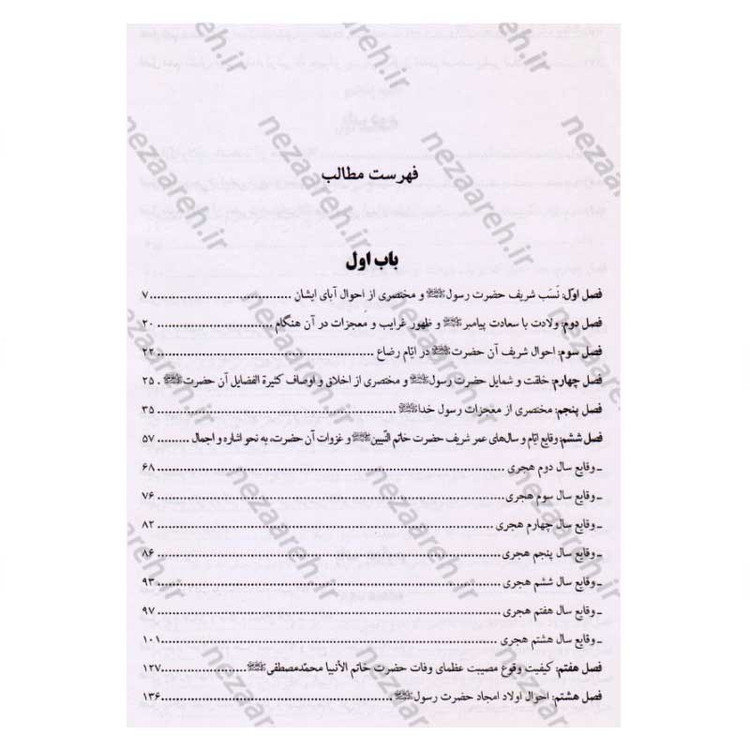 فهرست مطالب
باب اول
فصل اوّل: نَسَب شریف حضرت رسولﷺ و مختصری از احوال آبای ایشان ..................................۷
فصل دوم: ولادت با سعادت پیامبرﷺ و ظهور غرایب و معجزات در آن هنگام ........................... ۲۰
فصل سوم: احوال شریف آن حضرتﷺ در ایّام رضاع ................................................ ۲۲
فصل چهارم: خلقت و شمایل حضرت رسولﷺ و مختصری از اخلاق و اوصاف کثیرة الفضایل آن حضرتﷺ . ۲۵
فصل پنجم: مختصری از معجزات رسول خداﷺ................................................ ۳۵
فصل ششم: وقایع ایّام و سال‌های عمر شریف حضرت خاتم النّبیینﷺ و غزوات آن حضرت، به نحو اشاره و اجمال ......... ۵۷
ـ وقایع سال دوم هجری ................................................ ۶۸
ـ وقایع سال سوم هجری................................................ ۷۶
ـ وقایع سال چهارم هجری ................................................ ۸۲
ـ وقایع سال پنجم هجری ................................................ ۸۶
ـ وقایع سال ششم هجری ................................................ ۹۳
ـ وقایع سال هفتم هجری ................................................ ۹۷
ـ وقایع سال هشتم هجری ................................................۱۰۱
فصل هفتم: کیفیت وقوع مصیبت عظمای وفات حضرت خاتم الأنبیا محمّدمصطفیﷺ....................۱۲۷
فصل هشتم: احوال اولاد امجاد حضرت رسولﷺ................................................۱۳۶
nezaareh.ir